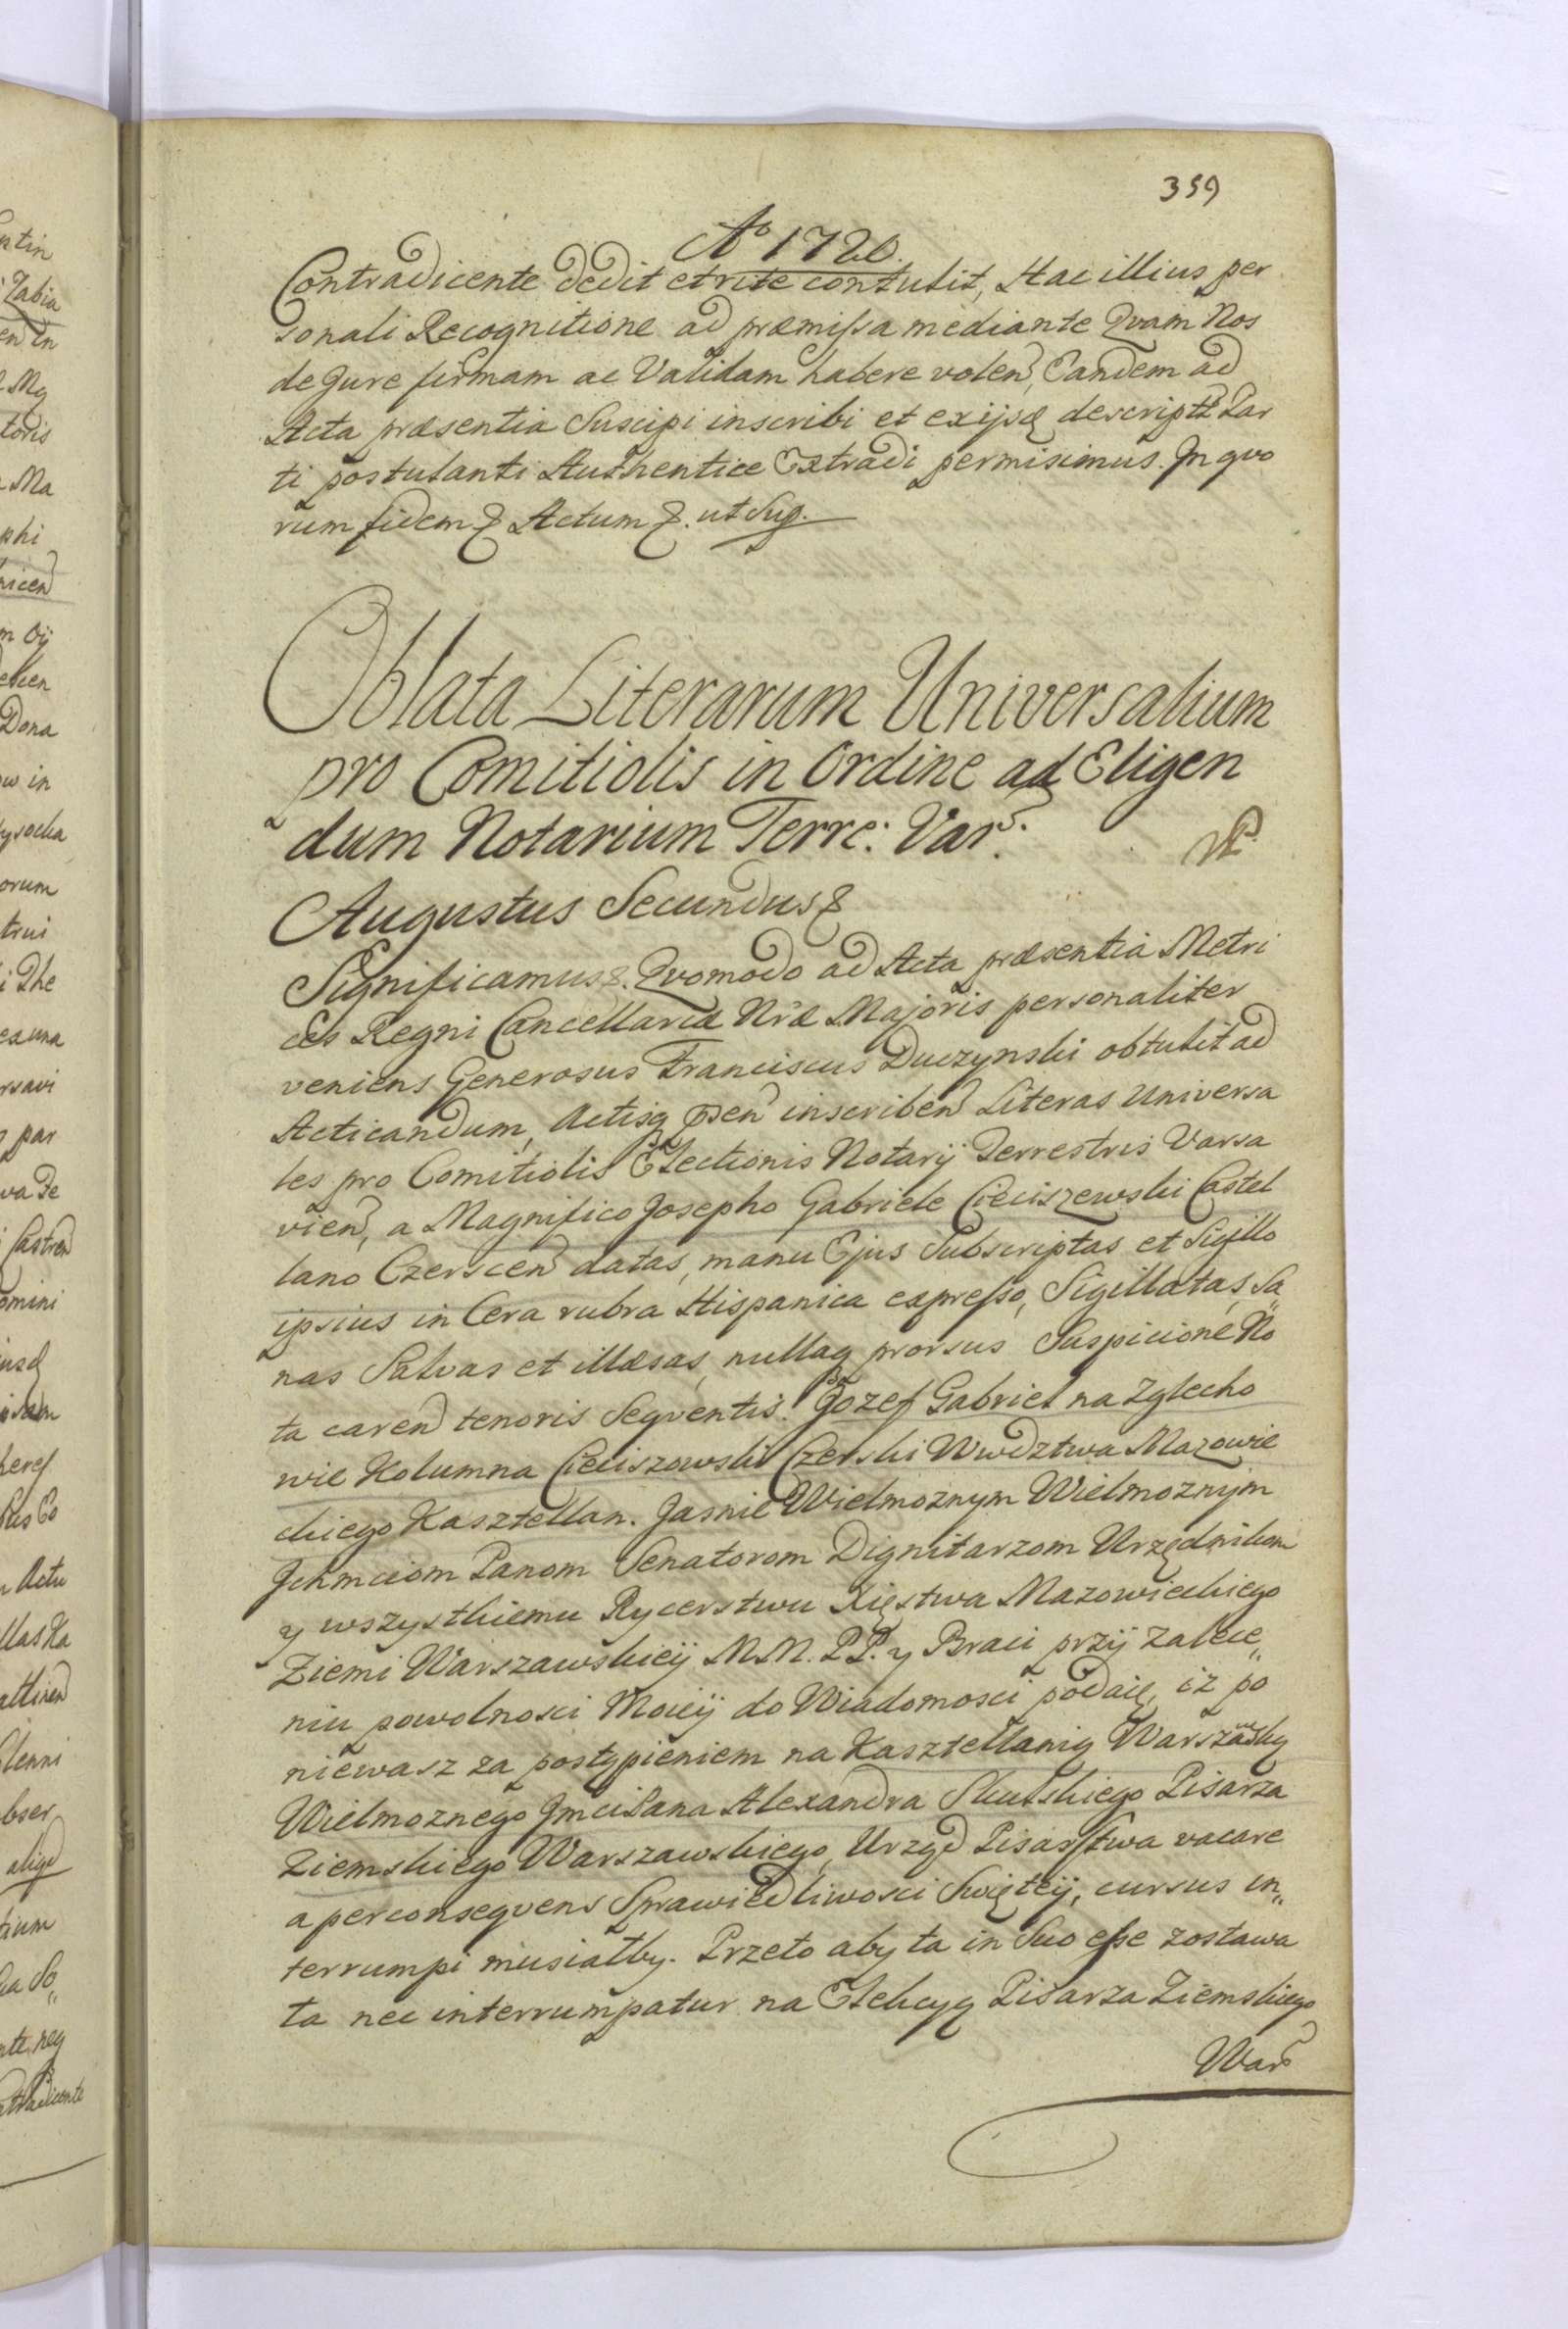 359
Ao 1720.
Contradicente dedit et rite contulit, Hac illius per
sonali Recognitione ad præmissa mediante Qvam Nos
de Jure firmam ac Validam habere volen, Eandem ad
Acta præsentia Suscipi inscribi et exijsq descriptt Par
ti postulanti Authentice Extradi permisimus. In qvo
rum fidem & Actum &. ut Sup.
Oblata Literarum Universalium
pro Comitiolis in Ordine ad Eligen
dum Notarium Terre: Var:
Augustus Secundus &
Significamus &. Qvomodo ad Acta præsentia Metri
ces Regni Cancellariæ Nræ Majoris personaliter
veniens Generosus Franciscus Duczynski obtulit ad
Acticandum, Actisq psen inscriben Literas Universa
les pro Comitiolis Electionis Notarij Terrestris Varsa
vien, a Magnifico Josepho Gabriele Cieciszewski Castel
lano Czerscen datas, manu Ejus Subscriptas et Sigillo
ipsius in Cera rubra Hispanica expresso, Sigillatas, Sa„
nas Salvas et illæsas, nullaq prorsus Suspicione No
ta caren tenoris Seqventis. Jozef Gabriel na Zglecho
wie Kolumna Cieciszowski Czerski Wwdztwa Mazowie
ckiego Kasztellan. Jasnie Wielmoznym Wielmoznym
Jchmciom Panom Senatorom Dignitarzom Urzędnikom
y wszystkiemu Rycerstwu Xięstwa Mazowieckiego
Ziemi Warszawskieij M.M. P.P. y Braci przij zalece„
niu powolnosci Moieij do Wiadomosci podaię, iz po
niewasz za postąpieniem na Kasztellanią Warszawską
Wielmoznego Jmci Pana Alexandra Skulskiego Pisarza
Ziemskiego Warszawskiego, Urząd Pisarstwa vacare
a per conseqvens Sprawiedliwosci Swięteij, cursus in„
terrumpi musiałby. Przeto aby ta in Suo esse zostawa
ła nec interrumpatur na Elekcyą Pisarza Ziemskiego
War